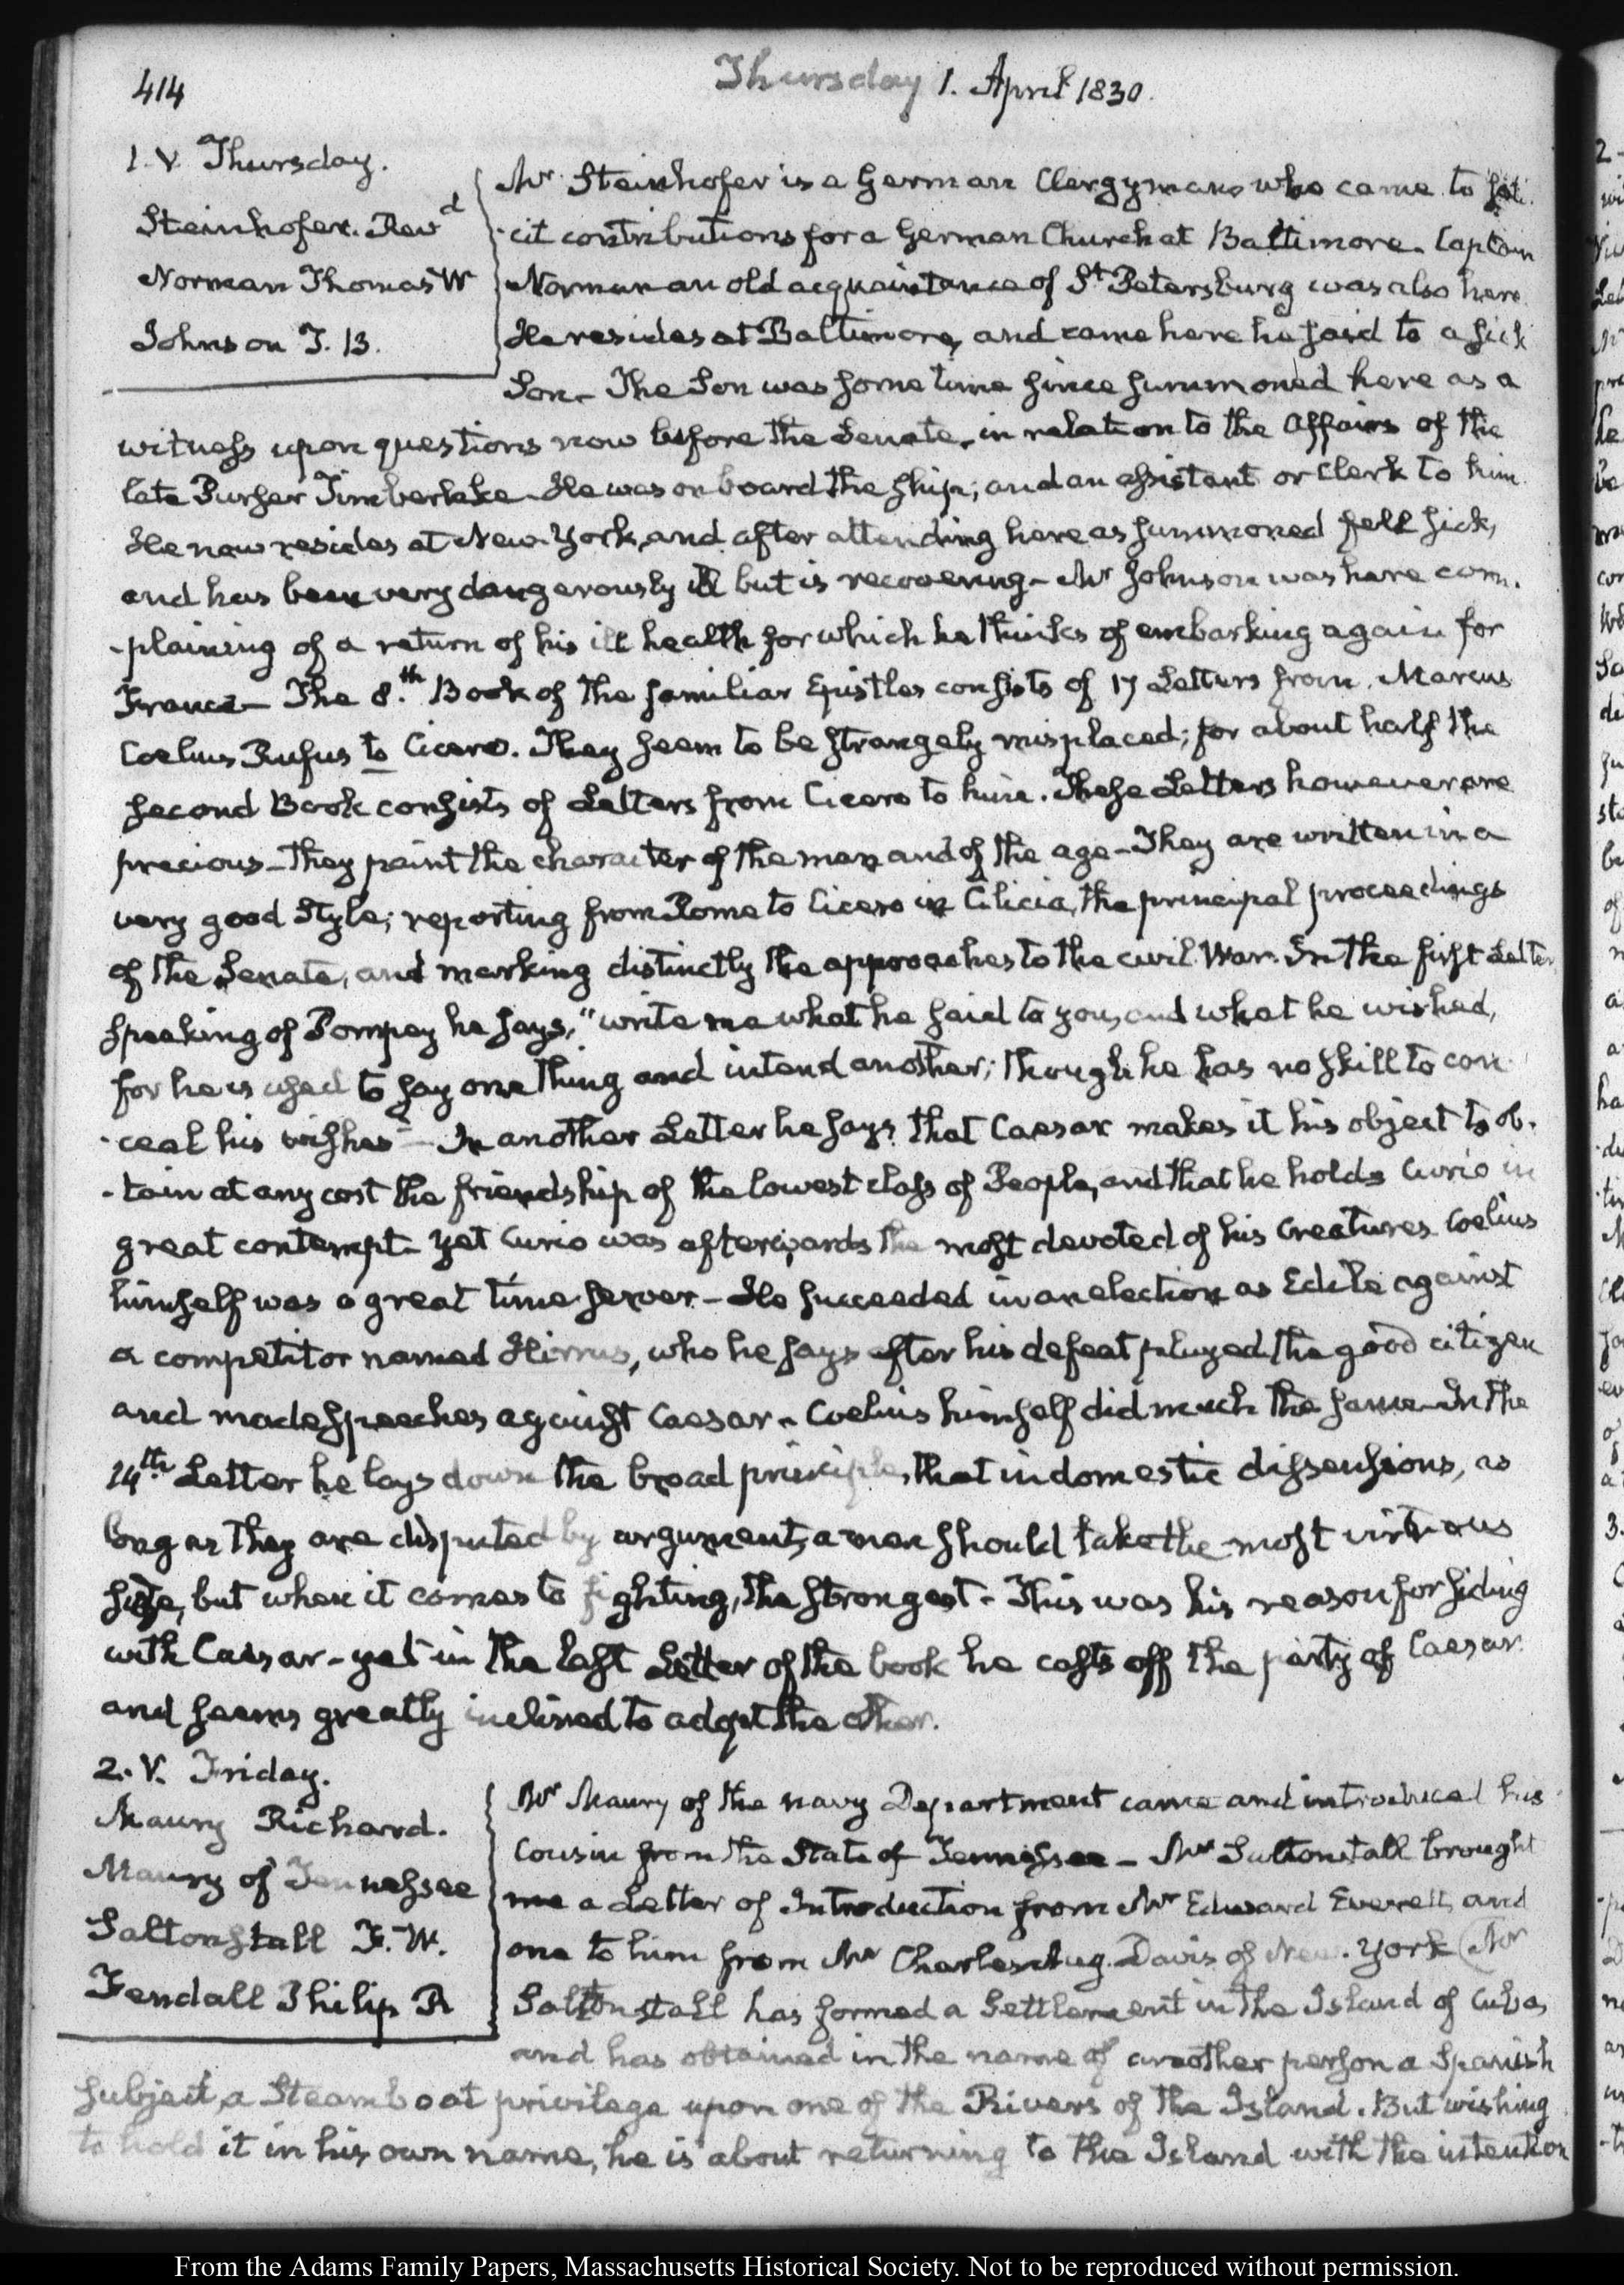 414
Thursday 1. April 1830.
1. V. Thursday.
Steinhofer. Revd
Norman Thomas W
Johnson T. B.
Mr Steinhofer is a German Clergyman who came to soli-
-cit contributions for a German Church at Baltimore. Captain
Norman an old acquaintance of St Petersburg was also here.
He resides at Baltimore, and came here he said to a sick
Son. The Son was some time since summoned here as a
witness upon questions now before the Senate, in relation to the affairs of the
late Purser Timberlake. He was on board the ship; and an assistant or Clerk to him.
He now resides at New-York, and after attending here as summoned fell sick,
and has been very dangerously ill but is recovering— Mr Johnson was here com-
-plaining of a return of his ill health for which he thinks of embarking again for
France— The 8.th Book of the familiar Epistles consists of 17 Letters from Marcus
Coelius Rufus to Cicero. They seem to be strangely misplaced; for about half the
second Book consists of Letters from Cicero to him. These Letters however are
precious—They paint the character of the man and of the age—They are written in a
very good style; reporting from Rome to Cicero in Cilicia, the principal proceedings
of the Senate, and marking distinctly the approaches to the civil War. In the first Letter
speaking of Pompey he says, "write me what he said to you, and what he wished,
for he is used to say one thing and intend another; though he has no skill to con-
-ceal his wishes"— In another Letter he says that Caesar makes it his object to ob-
-tain at any cost the friendship of the lowest class of People, and that he holds Curio in
great contempt— yet Curio was afterwards the most devoted of his Creatures. Coelius
himself was a great time server— He succeeded in an election as Edile against
a competitor named Hirrus, who he says after his defeat played the good citizen
and made speeches against Caesar. Coelius himself did much the same—In the
14th Letter he lays down the broad principle, that in domestic dissensions, as
long as they are disputed by argument, a man should take the most virtuous
side, but when it comes to fighting, the strongest— This was his reason for siding
with Caesar— yet in the last Letter of the book he casts off the party of Caesar
and seems greatly inclined to adopt the other.
2. V. Friday.
Maury Richard.
Maury of Tennessee
Saltonstall F. W.
Fendall Philip R
Mr Maury of the navy Department came and introduced his
Cousin from the State of Tennessee— Mr Saltonstall brought
me a Letter of Introduction from Mr Edward Everett, and
one to him from Mr Charles Aug. Davis of New-York (Mr
Saltonstall has formed a Settlement in the Island of Cuba,
and has obtained in the name of another person a Spanish
subject, a Steamboat privilege upon one of the Rivers of the Island. But wishing
to hold it in his own name, he is about returning to the Island with the intention
From the Adams Family Papers, Massachusetts Historical Society. Not to be reproduced without permission.